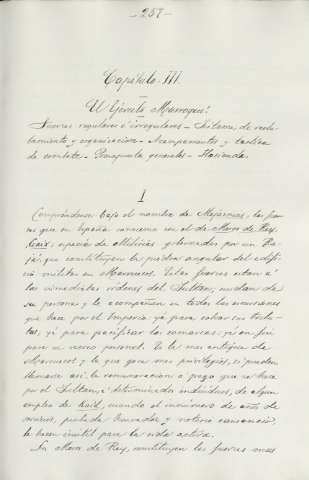 -257-
Capítulo III.
El Ejército Marroquí
Fuerzas regulares é irregulares - Sistema de reclu-
tamiento y organización - Acampamentos y táctica
de combate - Presupuesto generales - Hacienda.
I
Compréndense bajo el nombre de Mejacnias, las fuer-
zas que en España conocemos con el de Moros de Rey.
especie de Milicias gobernadas por un Ba-
já, que constituyen la piedra angular del edifi-
cio militar en Marruecos. Estas fuerzas estan á
las inmediatas órdenes del Sultan, cuidan de
su persona y le acompañan en todas las excursiones
que hace por el Imperio, yá para cobrar sus tribu-
tos, yá para pacificar las comarcas; yá en fin
para un recreo personal. Es la mas antigua de
Marruecos y la que goza mas privilegios, si pueden
llamarse así la remuneracion ó pago que se hace
por el Sultan, á determinados individuos, de algun
empleo de Kaid, cuando el sinnúmero de años de
servicio, probada honradez y notorio cansancio,
le hacen inútil para la vida activa.
Los Moros de Rey, constituyen las fuerzas mas